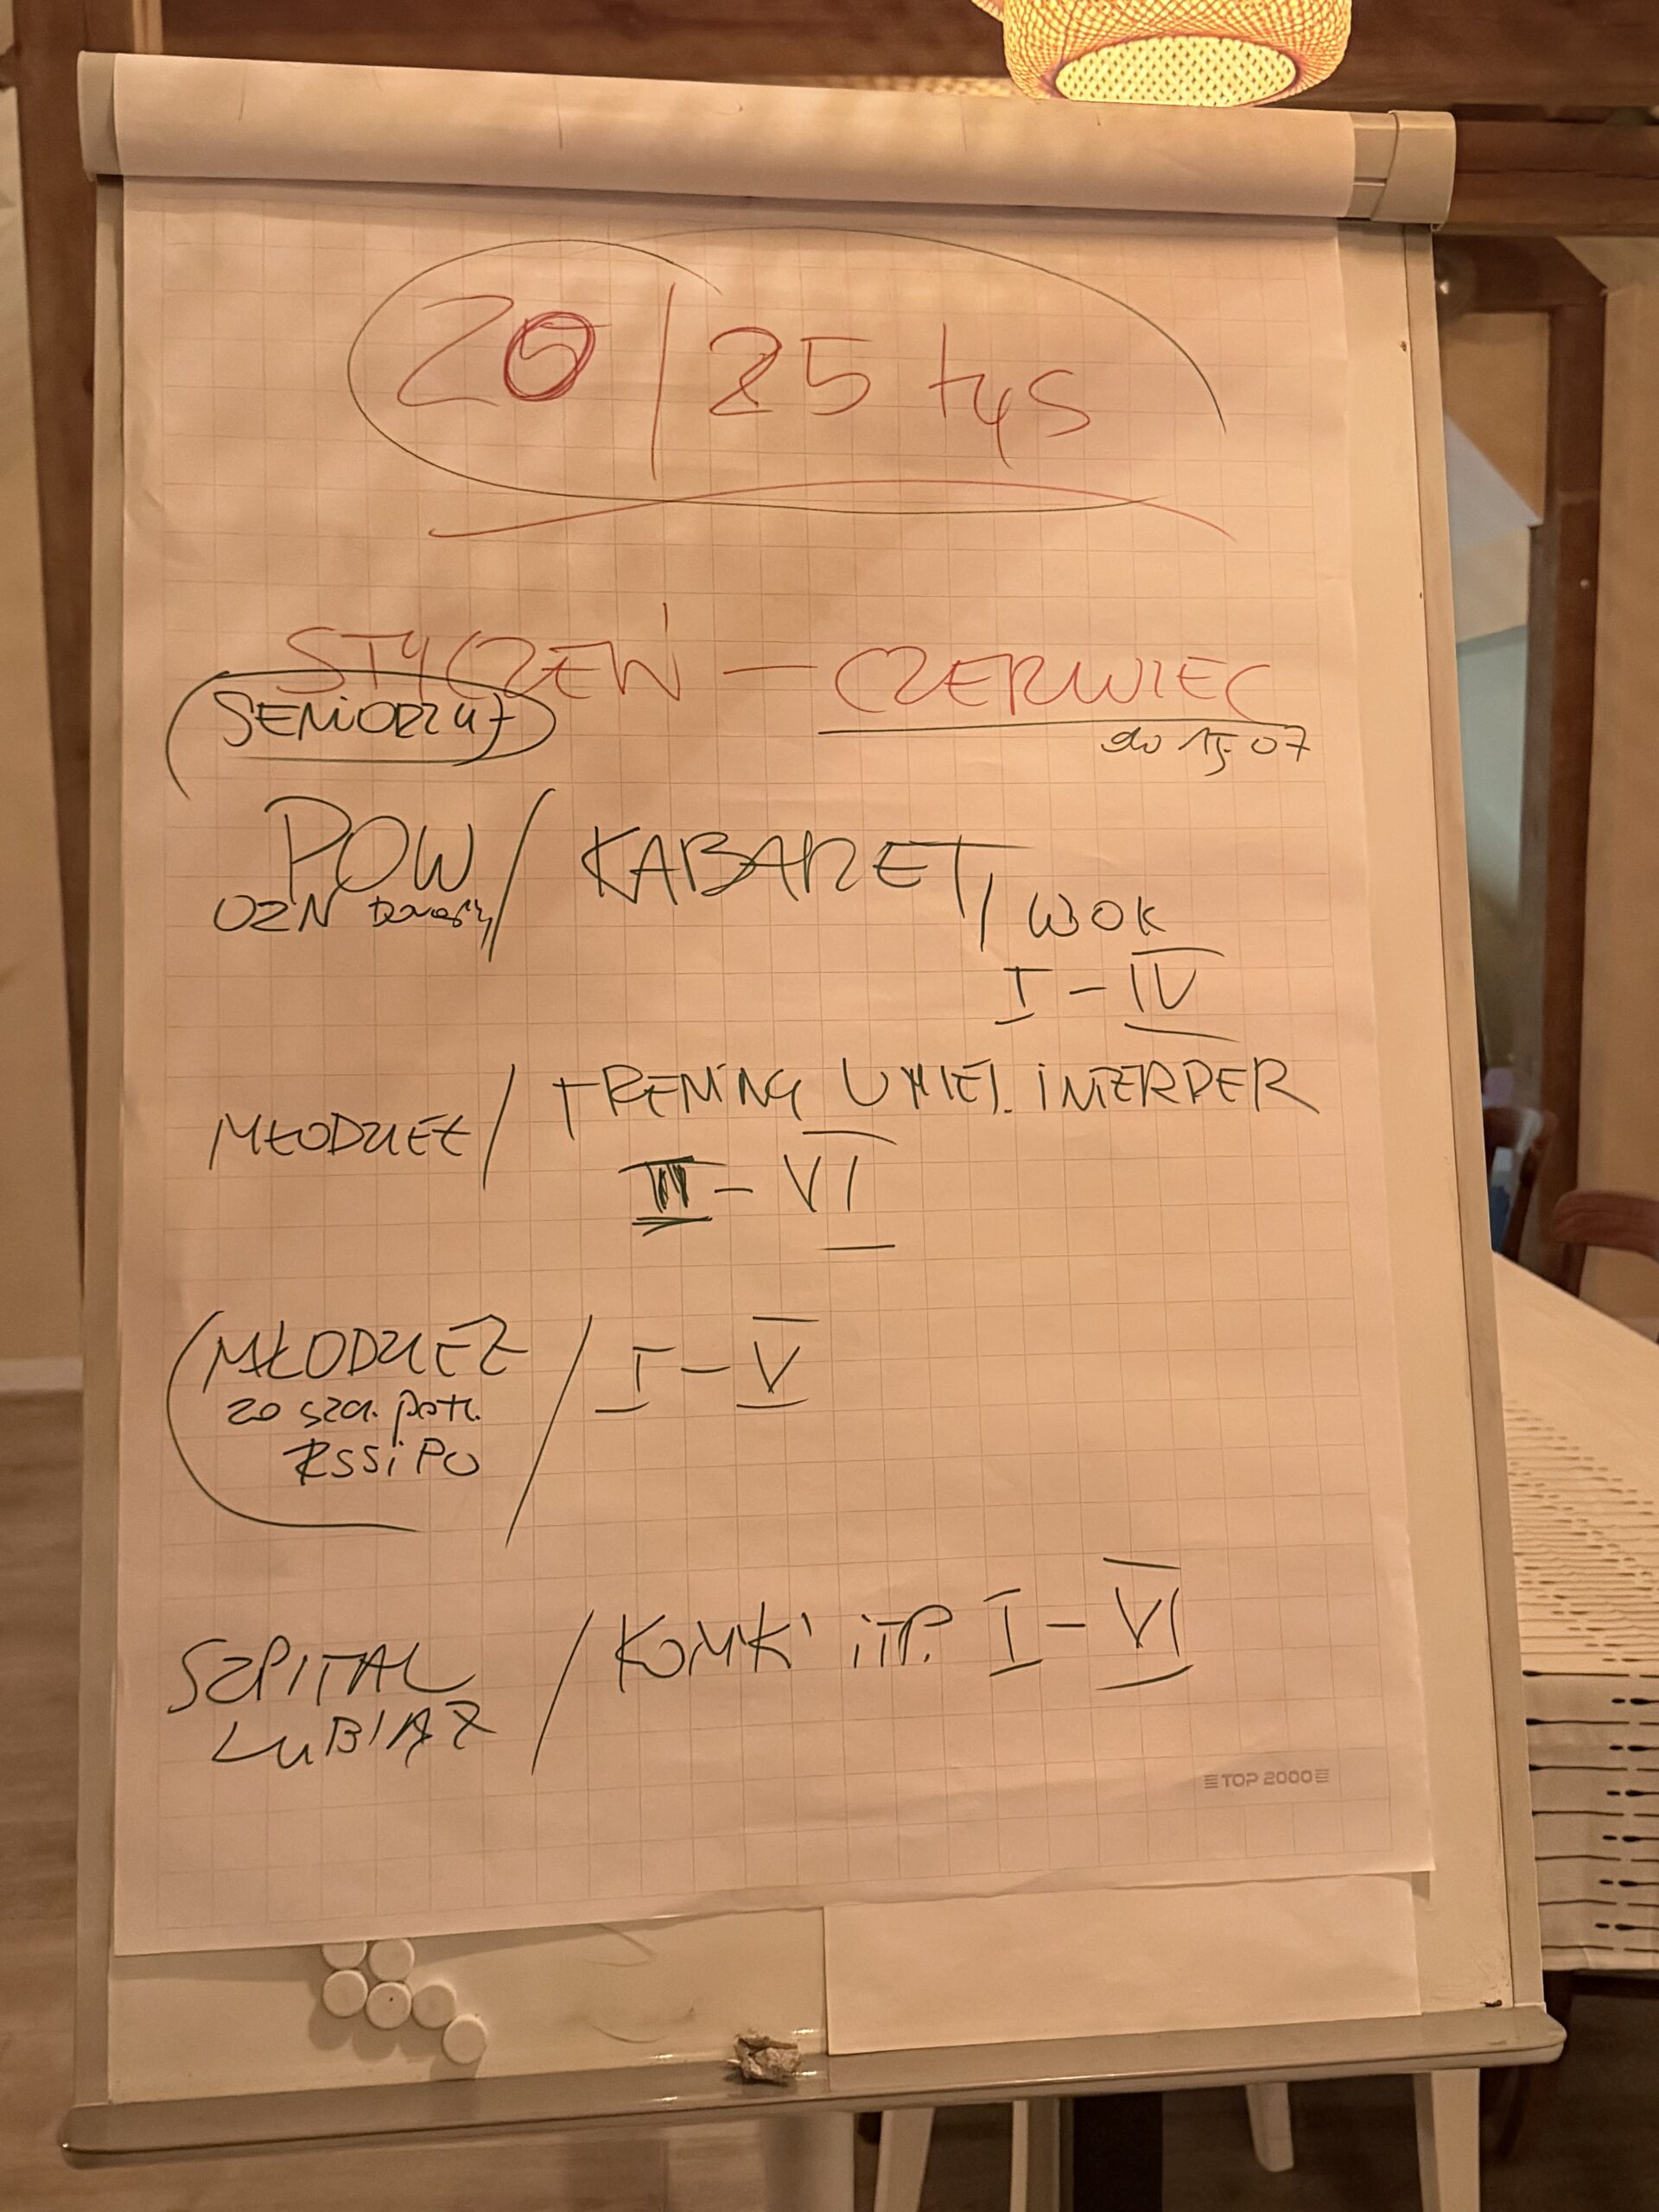 20 / 25 tys
STYCZEŃ - CZERWIEC
SENIORZY
do 15 07
POW / KABARET, WOK
OZN
I - IV
MŁODZIEŻ / TRENING UMIEJ. INTERPER
III - VI
MŁODZIEŻ / I - V
zo szcz. potr.
RSSiPO
SZPITAL / KOMIKI iTP. I - VI
LUBIĄŻ
TOP 2000